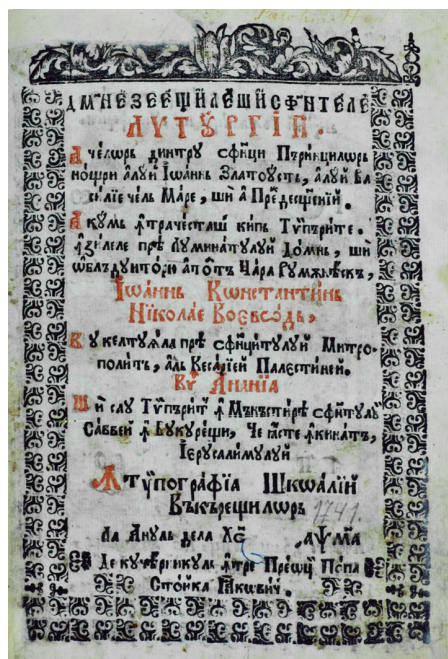 ДМНЕЗЕЕЩИЛЕ ШИ СФИНТЕЛЕ
ЛУТꙊРГІИ.
А чєлѡрь динтру сфи́нци Пъри́нцилѡрь
ношри а̀луй Іѡа́ннь Златоꙋсть, а́луй Ва
си́лїе че́ль Ма́ре, шѝ а̀ Пре́дещенїй.
А кꙋ́мь ꙟ҆траче́сташ ки́пь Тѷпъ́рите.
ꙟ҆зи́леле пре́ Луминатꙋлуй До́мнь, шѝ
ѡблъдꙋито́рю а̀то́тъ Ца́ра Румѫнѣ́скъ,
Іѡа́ннь Кѡнстанти́нь
Нїкола́е Воєво́дь,
Кꙋ келтꙋѧ́ла пре́ сфинци́тулуй Митро
поли́ть, а̀ль Кесарі́ей Палєсти́ней.
Кѵ́р А̀на́нїа
Ши́ сау Тѷпъри́т ꙟ҆ Мънъсти́рѣ сфи́нтулуй
Са́ввей ꙟ҆ Бꙋкꙋре́щи, Че ꙗ҆́сте ꙟ҆кина́тъ,
І҆ерꙋсали́мулуй
Ꙟ Тѷпогра́фїа Шкѡа́лїй
Бъкъре́щилѡрь 1741.
Ла А́нуль де́ла Хс҃ ҂аѱма
Де кучє́рникуль ꙟ҆тре Прео́ци По́па
Сто́йка Ꙗ҆ковичь.